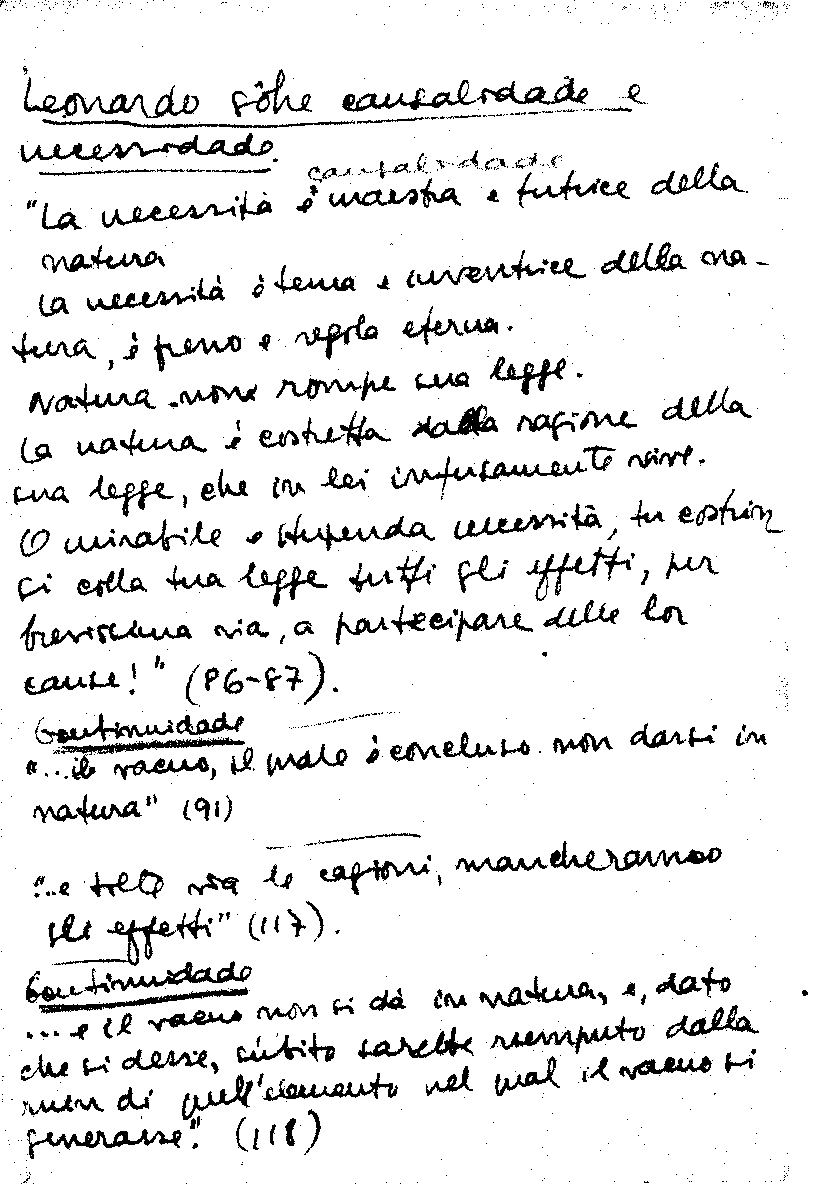 Leonardo sôbre causalidade e
necessidade.
causalidade
"La necessità è maestra e tutrice della
natura
La necessità è tema e inventrice della na-
tura, è freno e regola eterna.
Natura none rompe sua legge.
La natura è costretta dalla ragione della
sua legge, che in lei infusamente vive.
O mirabile e stupenda necessità, tu costrin
gi colla tua legge tutti gli effetti, per
brevissima via, a partecipare delle lor
cause!" (86-87).
Continuidade
"...il vacuo, il quale è concluso non darsi in
natura" (91)
"...e tolte via le cagioni, mancheranno
gli effetti" (117).
Continuidade
... e il vacuo non si dà in natura, e, dato
che si desse, subito sarebbe riempiuto dalla
ruina di quell'elemento nel qual il vacuo si
generasse". (118)